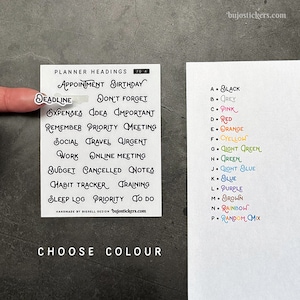 bujostickers.com
PLANNER HEADINGS
Appointment Birthday
Deadline Don't forget
Expenses Idea Important
Remember Priority Meeting
Social Travel Urgent
Work Online meeting
Budget Cancelled Notes
Habit tracker Training
Sleep log Priority To do
HANDMADE BY BIGHELL DESIGN bujostickers.com
CHOOSE COLOUR
A • Black
B • Grey
C • Pink
D • Red
E • Orange
F • Yellow
G • Light Green
H • Green
J • Light Blue
K • Blue
L • Purple
M • Brown
N • Rainbow
P • Random Mix